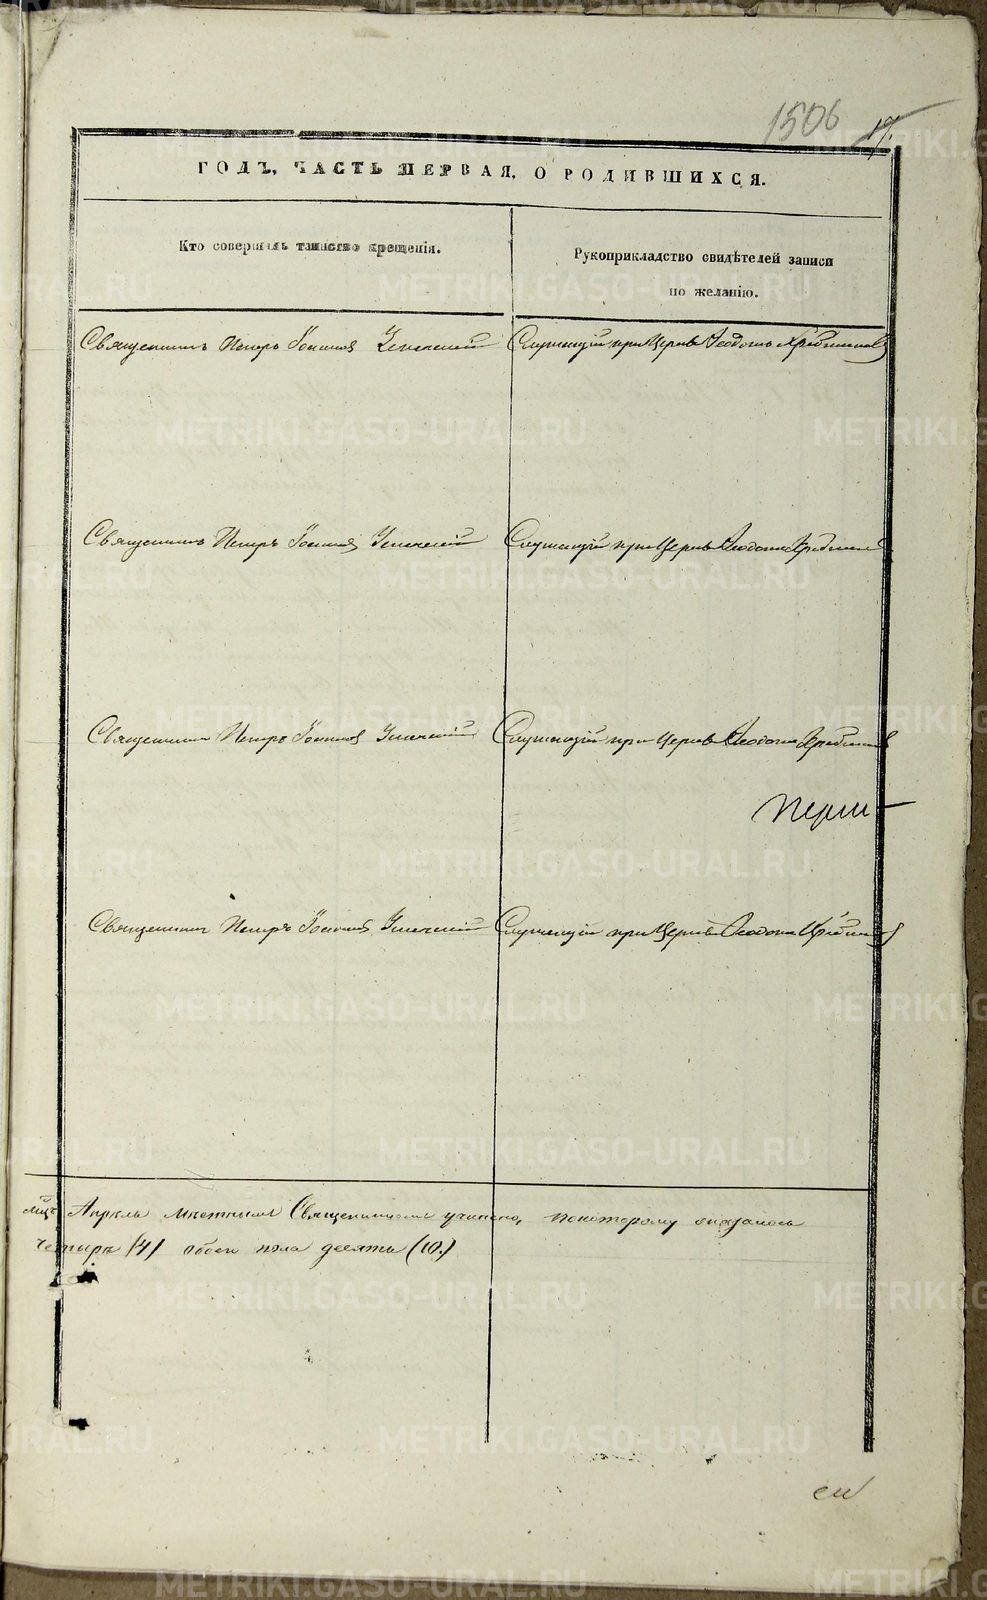 1506
17.
ГОДЪ, ЧАСТЬ ПЕРВАЯ, О РОДИВШИХСЯ.
Кто совершалъ таинство крещенія.
Рукоприкладство свидѣтелей записи
по желанію.
Священникъ Петръ Іоанновъ Успенскій
Служащій при Церкви Ѳеодотъ
Священникъ Петръ Іоанновъ Успенскій
Служащій при Церкви Ѳеодотъ
Священникъ Петръ Іоанновъ Успенскій
Служащій при Церкви Ѳеодотъ
Перми
Священникъ Петръ Іоанновъ Успенскій
Служащій при Церкви Ѳеодотъ
Апрѣль мѣстнымъ Священникомъ учинено, по которому оказалось
четыре (4) обоего пола десять (10.)
METRIKI.GASO-URAL.RU